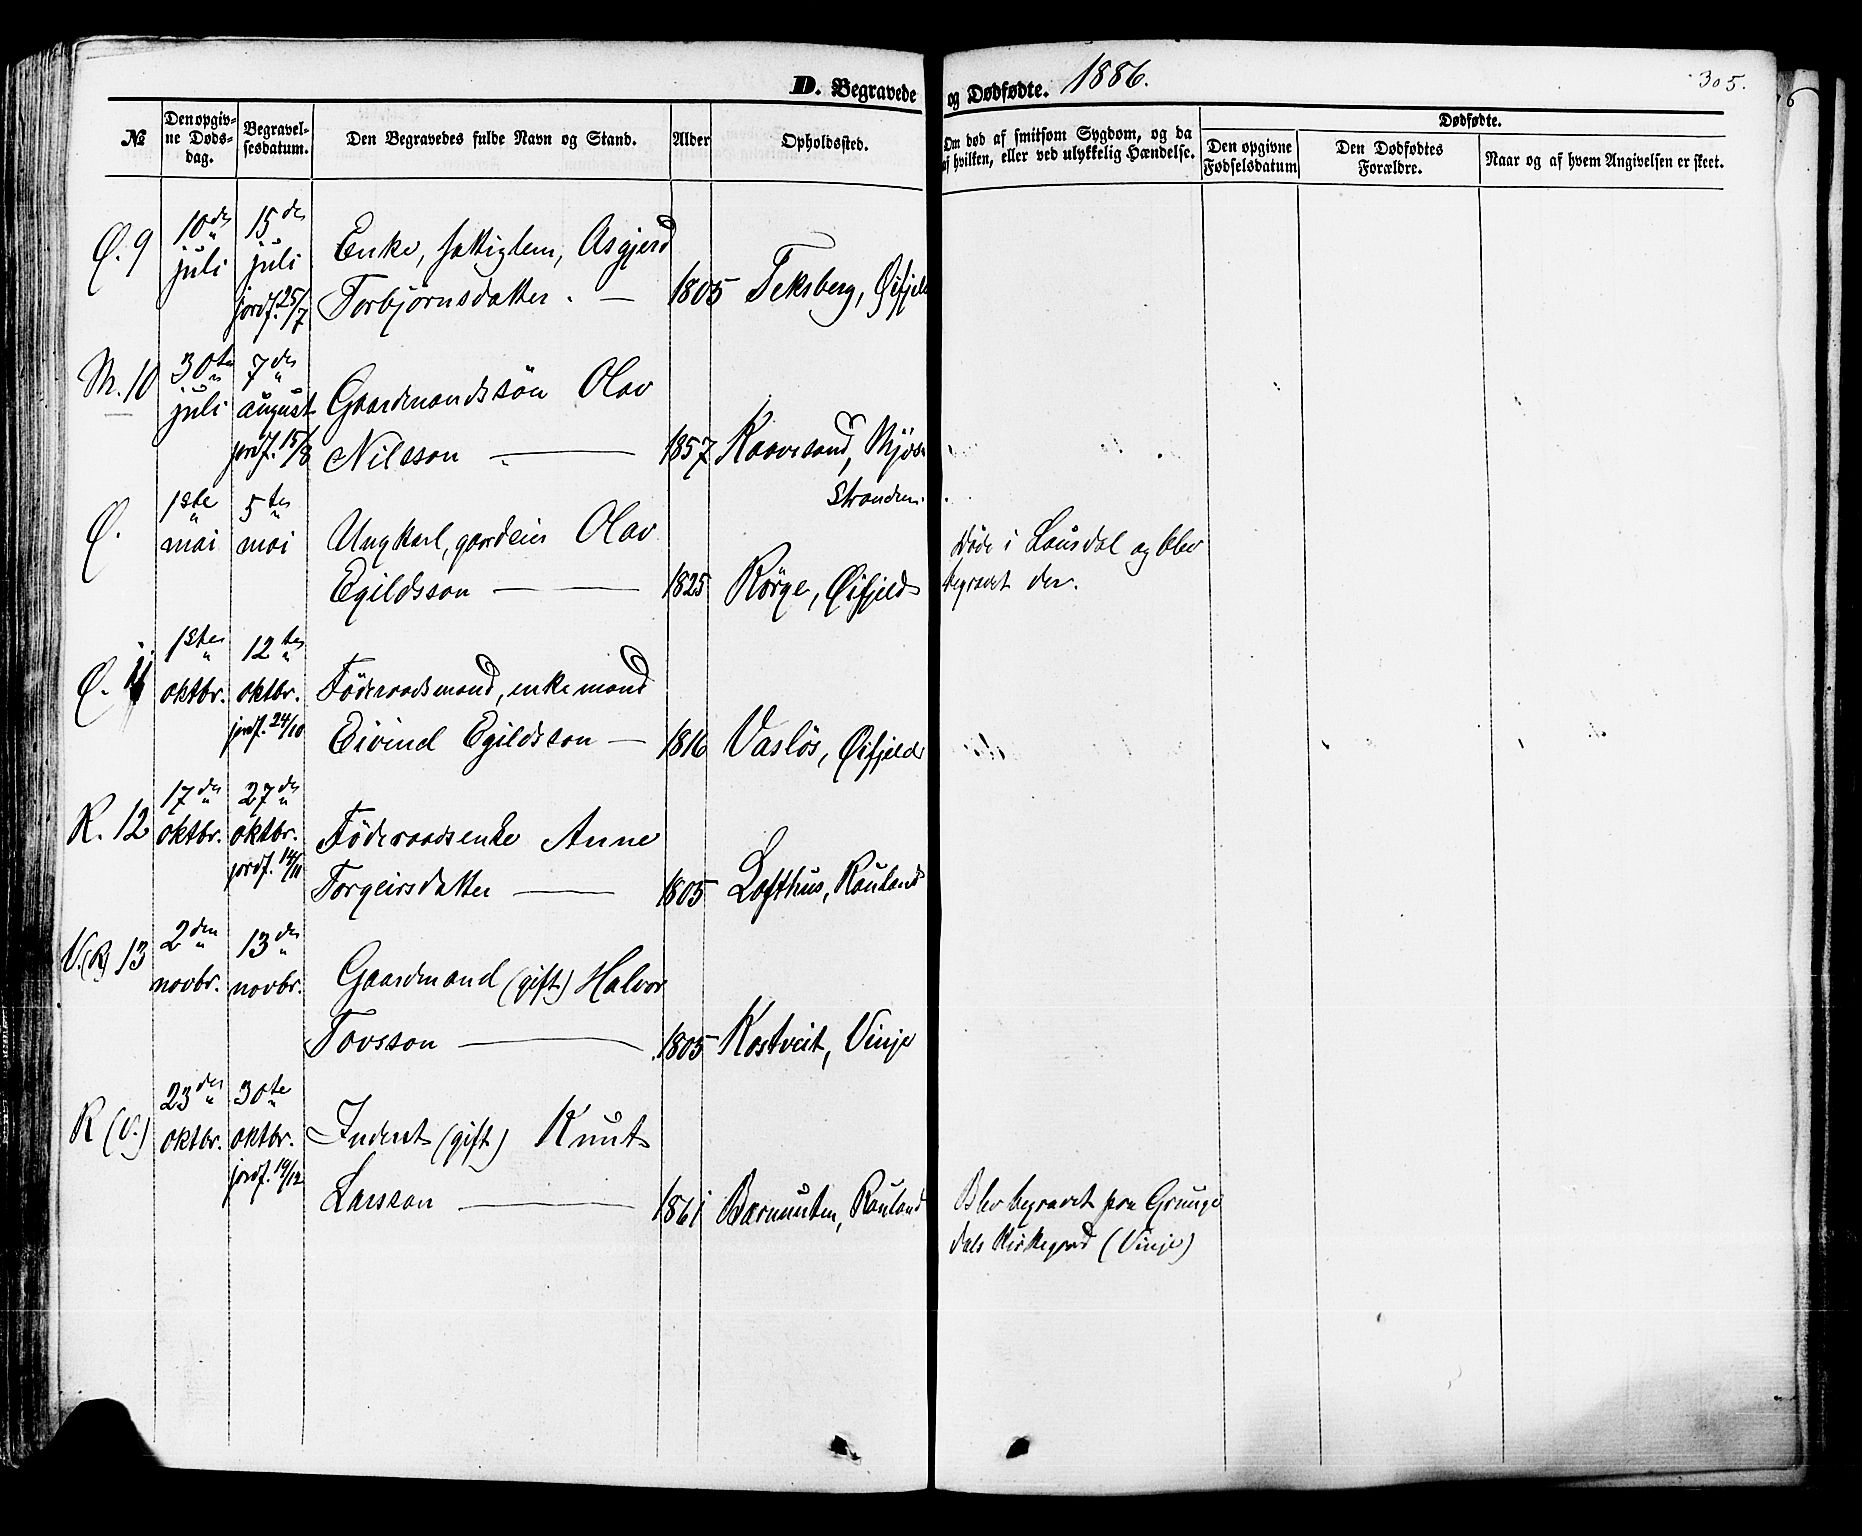 D. Begravede og Dødfødte. 1886.
305.
№
Den opgivne Dødsdag.
Begravelsesdatum.
Den Begravedes fulde Navn og Stand.
Alder
Opholdssted.
Om død af smitsom Sygdom, og da af hvilken, eller ved ulykkelig Hændelse.
Dødfødte.
Den opgivne Fødselsdatum
Den Dødfødtes Forældre.
Naar og af hvem Angivelsen er skeet.
Ø. 9 10de juli 15de juli jordf. 25/7
Enke, fattiglem, Asgjerd
Torbjørnsdatter. — 1805 Teksberg, Øifjeld
M. 10 30te juli 7de august jordf. 15/8
Gaardmandssön Olav
Nilsson — 1857 Raavesand, Mjös-
Stranden.
Ø. 1ste mai 5te mai
Ungkarl, gardeier Olav
Egildsson — 1825 Rörge, Øifjeld
Döde i Lausdal og blev
begravet der.
Ø. 11 1ste oktbr. 12te oktbr. jordf. 24/10
Föderaadsmand, enkemand
Eivind Egildsson — 1816 Vaslös, Øifjeld
R. 12 17de oktbr. 27de oktbr. jordf. 14/11
Föderaadsenke Anne
Torgeirsdatter — 1805 Lofthus, Rauland
V.(R) 13 2den novbr. 13de novbr.
Gaardmand (gift) Halvor
Tovsson — 1805 Kostveit, Vinje
R (V.) 23de oktbr. 30te oktbr. jordf. 19/12
Inderst (gift) Knut
Larsson — 1861 Barnuten, Rauland
Blev begravet paa Grunge
dals Kirkegard (Vinje)